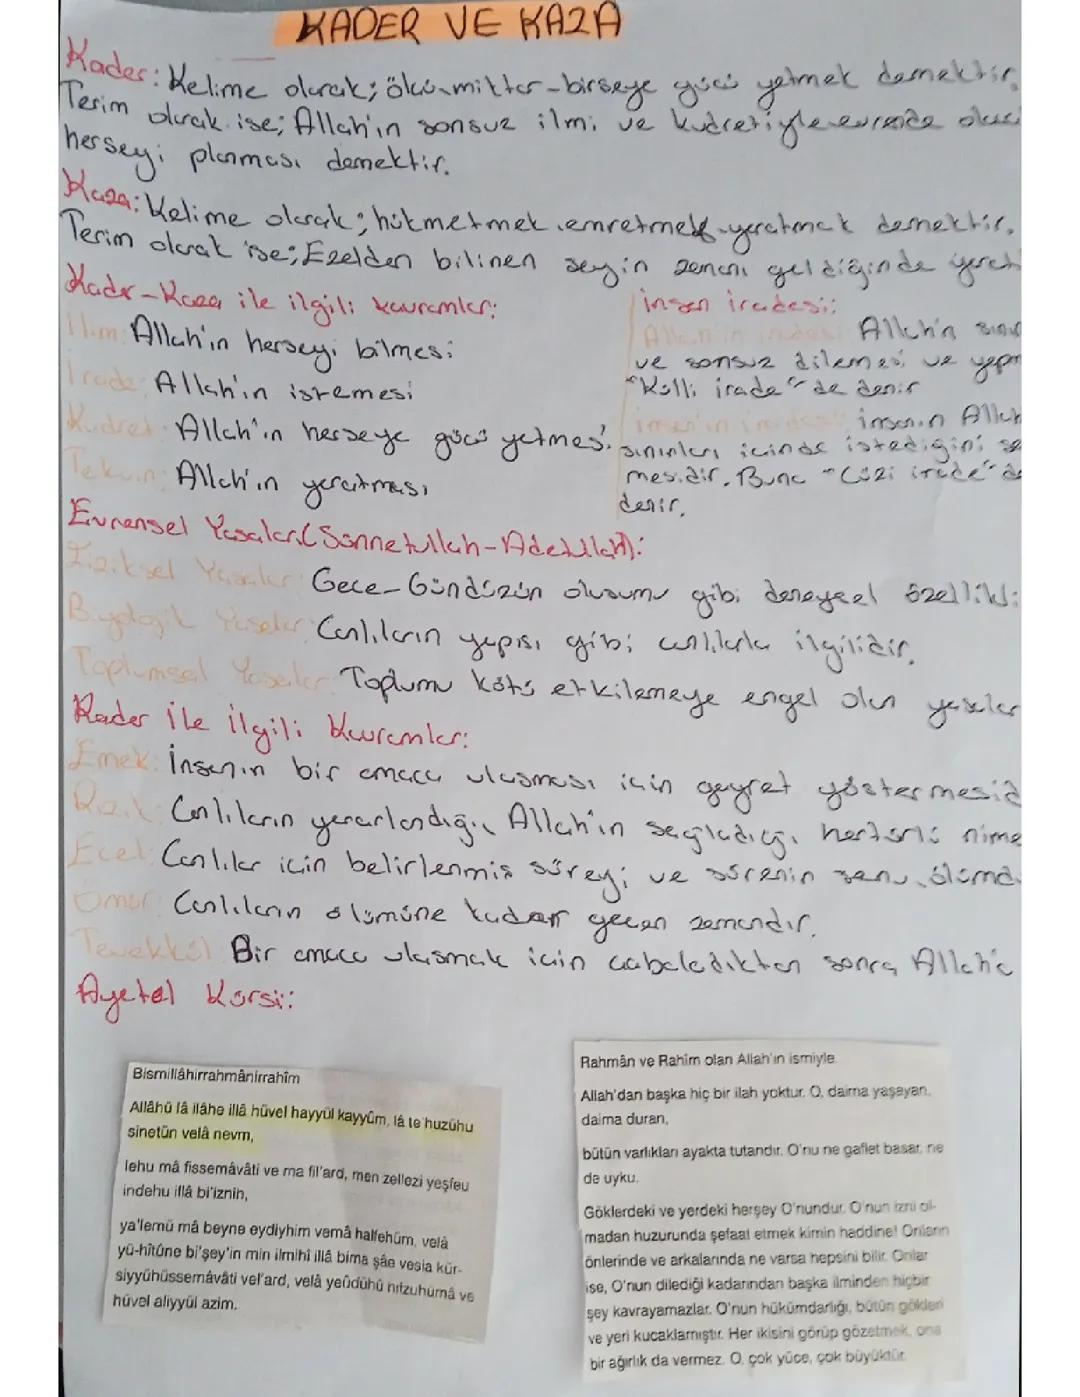 KADER VE KAZA
Kader: Kelime olarak; ölçü, miktar - birşeye gücü yetmek demektir.
Terim olarak ise; Allah'ın sonsuz ilmi ve kudretiyle evrende olası
herşeyi planması demektir.
Kaza: Kelime olarak; hükmetmek, emretmek, yaratmak demektir.
Terim olarak ise; Ezelden bilinen şeyin zamanı geldiğinde yarat
Kadr-Kaza ile ilgili kavramlar:
İlim: Allah'ın herşeyi bilmesi
İrade: Allah'ın istemesi
Kudret: Allah'ın herşeye gücü yetmesi
Tekvin: Allah'ın yaratması
insan iradesi:
Allah'ın iradesi: Allah'ın sınır
ve sonsuz dilemesi ve yapm
"Külli irade" de denir
insan'ın iradesi: insanın Allah
sınırları içinde istediğini se
mesidir. Buna "Cüzi irade" de
denir.
Evrensel Yasalar (Sünnetullah-Adetullah):
Fiziksel Yasalar: Gece-Gündüzün oluşumu gibi deneysel özellikli
Biyolojik Yasalar: Canlıların yapısı gibi canlılarla ilgilidir.
Toplumsal Yasalar: Toplumu kötü etkilemeye engel olan yasalar
Kader ile ilgili Kavramlar:
Emek: İnsanın bir amaca ulaşması için gayret göstermesid
Rızık: Canlıların yararlandığı, Allah'ın sağladığı hertürlü nime
Ecel: Canlılar için belirlenmiş süreyi ve sürenin sonu, ölümd
Ömür: Canlıların ölümüne kadar geçen zamandır.
Tevekkül: Bir amaca ulaşmak için çabaladıktan sonra Allah'a
Ayetel Kürsi:
Bismillâhirrahmânirrahîm
Allâhü lâ ilâhe illâ hüvel hayyül kayyûm, lâ te'huzühu
sinetün velâ nevm,
lehu mâ fissemâvâti ve ma fil'ard, men zellezi yeşfeu
indehu illâ bi'iznih,
ya'lemü mâ beyne eydiyhim vemâ halfehüm, velâ
yü-hîtûne bi'şey'in min ilmihî illâ bima şâe vesia kür-
siyyühüssemâvâti vel'ard, velâ yeûdühû hıfzuhümâ ve
hüvel aliyyül azim.
Rahmân ve Rahîm olan Allah'ın ismiyle.
Allah'dan başka hiç bir ilah yoktur. O, daima yaşayan,
daima duran,
bütün varlıkları ayakta tutandır. O'nu ne gaflet basar, ne
de uyku.
Göklerdeki ve yerdeki herşey O'nundur. O'nun izni ol-
madan huzurunda şefaat etmek kimin haddine! Onların
önlerinde ve arkalarında ne varsa hepsini bilir. Onlar
ise, O'nun dilediği kadarından başka ilminden hiçbir
şey kavrayamazlar. O'nun hükümdarlığı, bütün gökleri
ve yeri kucaklamıştır. Her ikisini görüp gözetmek, ona
bir ağırlık da vermez. O, çok yüce, çok büyüktür.